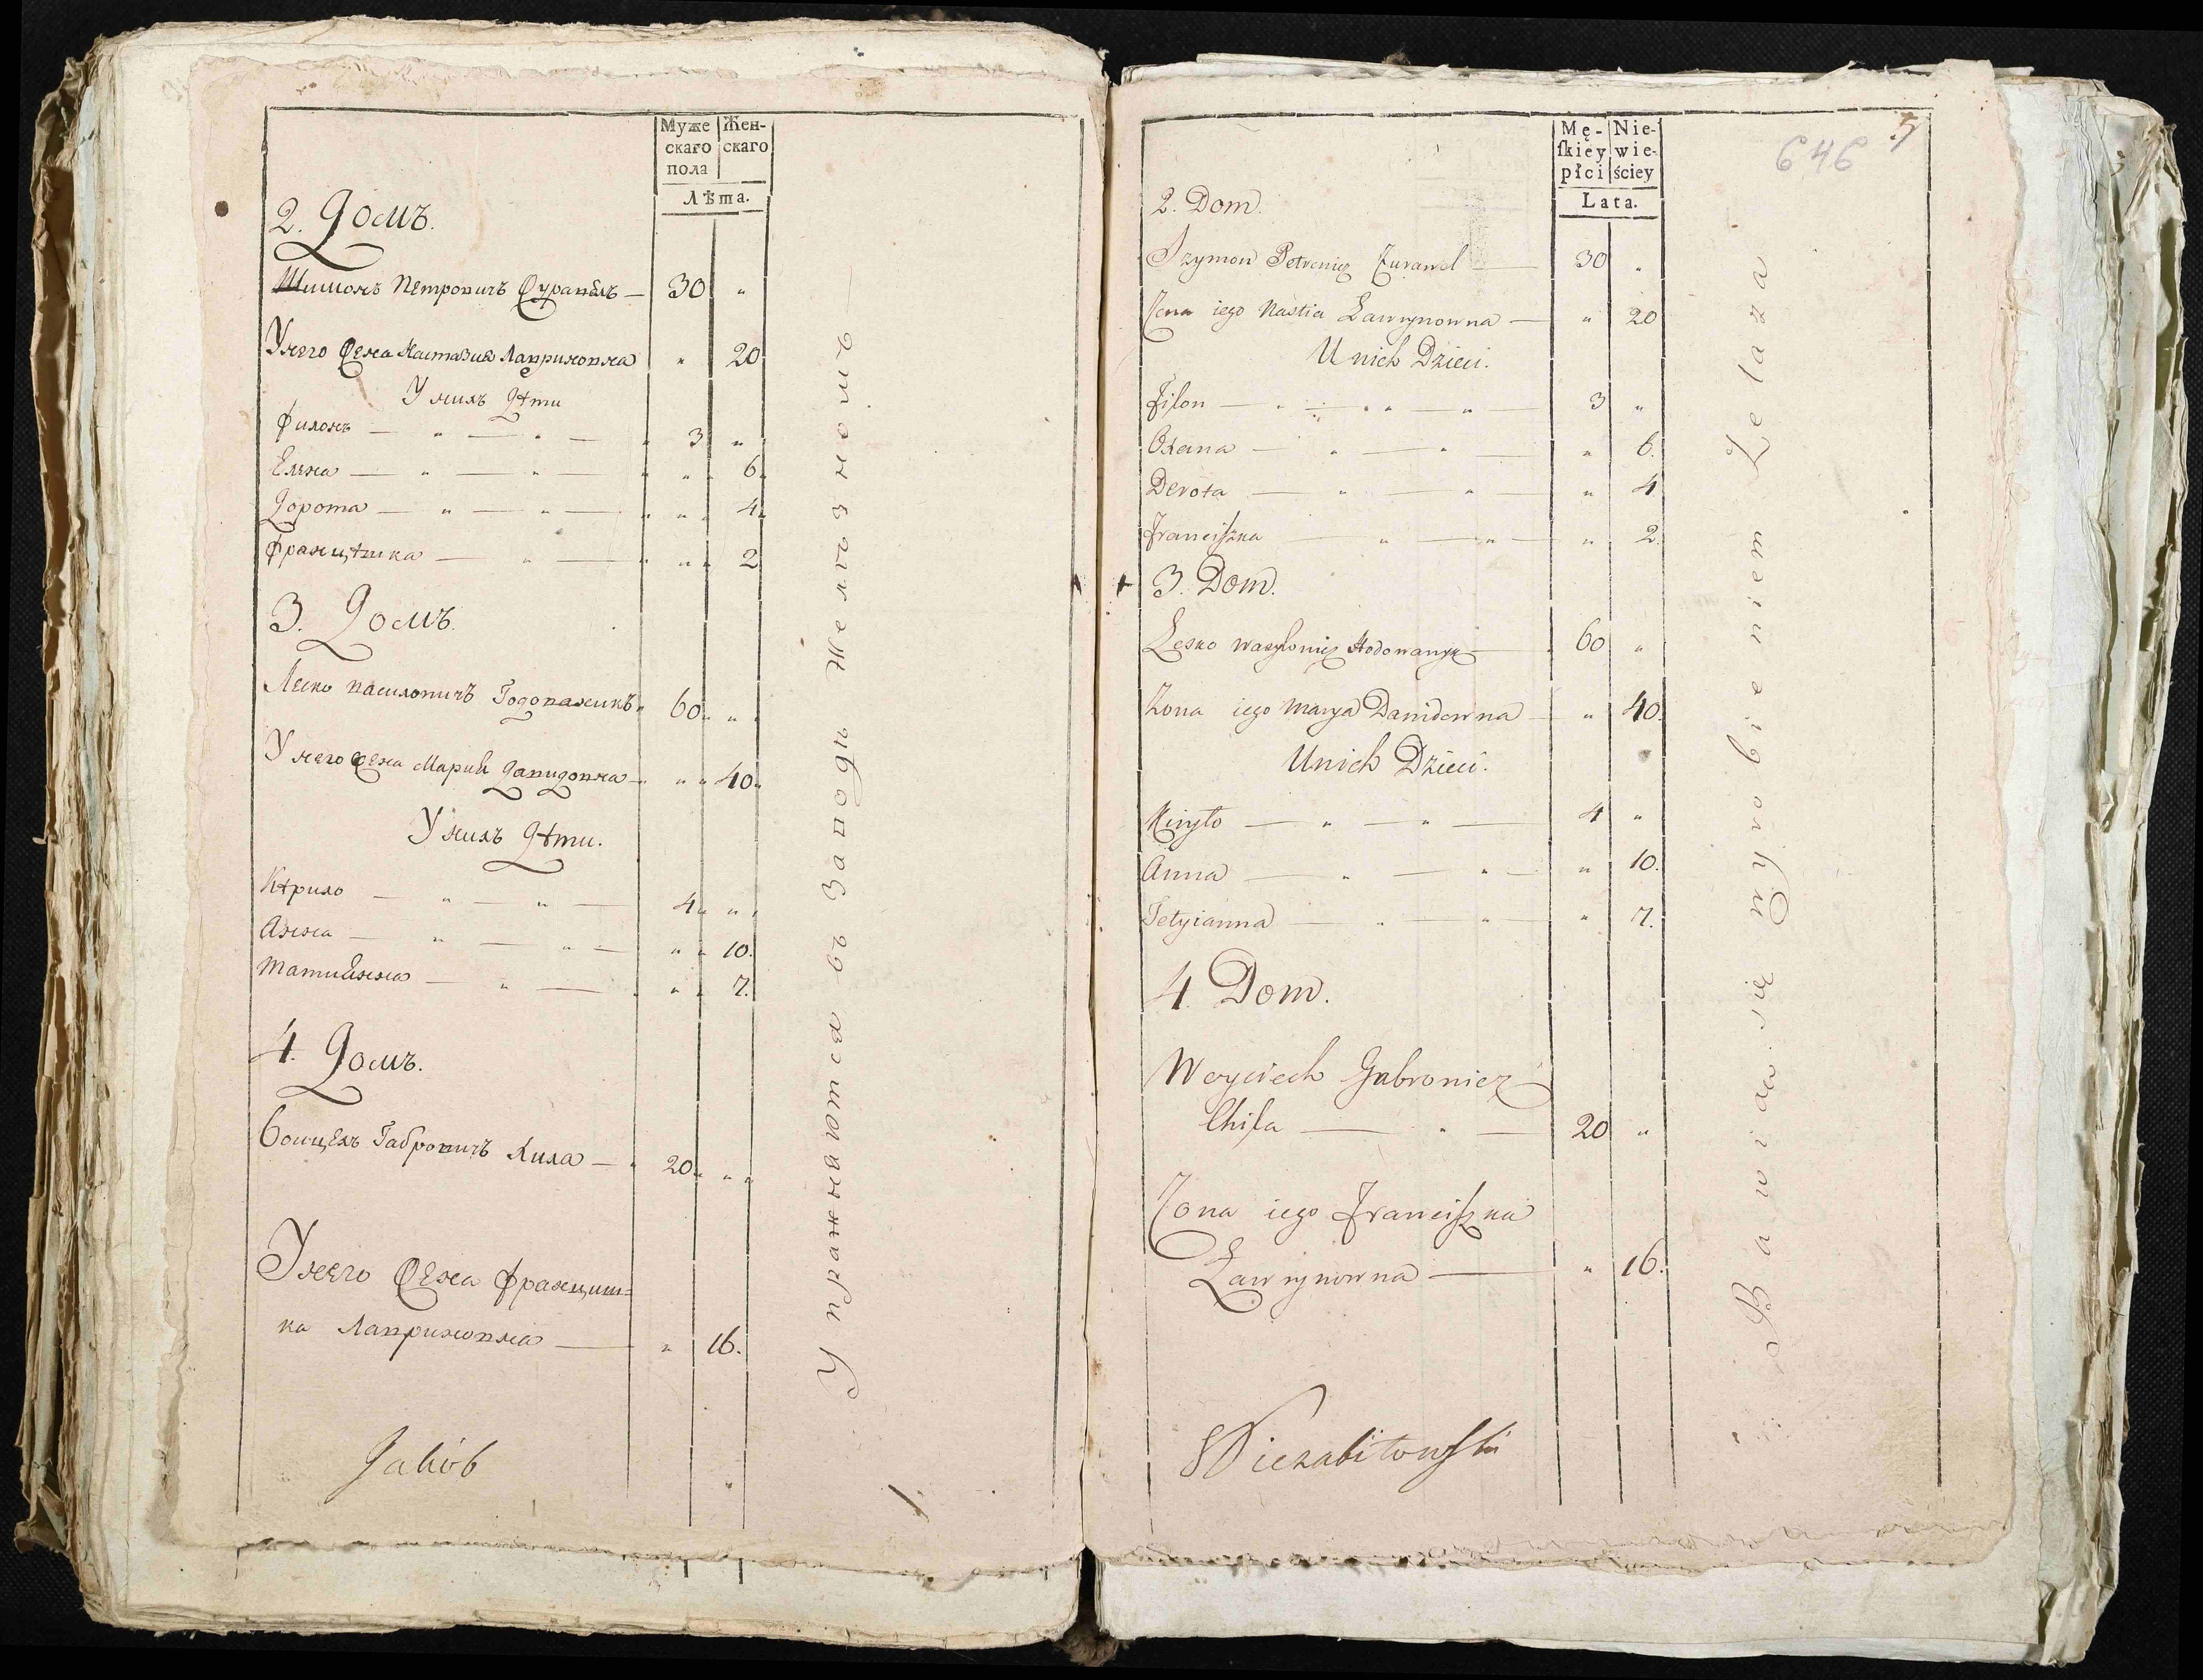 Муже скаго пола
Жен- скаго
Лѣта.
2. Домъ.
Шимонъ Петровичъ Журавль — 30 "
У него Жена Настазия Лавриновна " 20
У нихъ Дѣти
Филонъ — " — " — " 3 "
Елена — " — " — " " 6
Дорота — " — " — " " 4
Францѣшка — " — " " 2
3. Домъ.
Леско Василовичъ Годованикъ " 60 "
У него Жена Мария Давидовна — " 40
У нихъ Дѣти.
Кѣрило — " — " — 4 "
Анна — " — " — " 10.
Татиянна — " — " 7.
4. Домъ.
Войцехъ Габровичъ Хила — 20 "
У него Жена Франциш=
ка Лавриновна — " 16.
Jakób
Упражнаются въ Заводѣ Желѣзномъ —
5
646
Mę- ſkiey płci
Nie- wie- ściey
Lata.
2. Dom.
Szymon Petrowicz Zurawel — 30 "
Zona iego Nastia Ławrynowna — " 20
U nich Dzieci.
Filon — " — " — " — 3 "
Oxena — " — " — " 6.
Derota — " — " — " 4
Franciszka — " — " — " 2.
3. Dom.
Lesko Wasylowicz Hodowanyk — 60 "
Zona iego Marya Dawidowna — " 40.
U nich Dzieci.
Kiryło — " — " — 4 "
Anna — " — " — " 10.
Tetyianna — " — " — " 7.
4. Dom.
Woyciech Gabrowicz
Chiła — " — 20 "
Zona iego Franciszka
Ławrynowna — " 16.
Niezabitowski
Bawiaw się wyrobieniem Zelaza